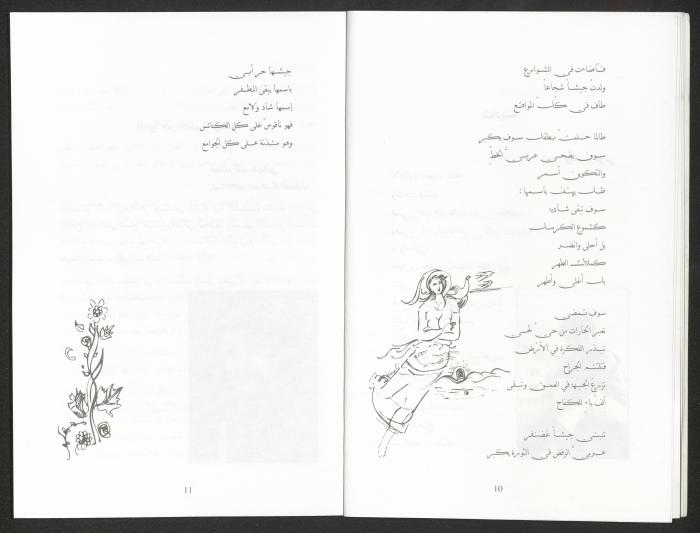 فأضاءت في الشوارع
ولدتْ جيشاً شجاعاً
طاف في كُلّ المواقع
طالما حلمتْ بطفلٍ سوف يكبر
سوف يضحي عربيَّ الخطِّ
والتكوين أسمر
ظلّ يهتف باسمها :
سوف تبقى شاديا
كشموع الكرملِ
بل أحلى وأنضر
كملاك الطهر
بل أغلى وأطهر
سوف تمضي
تعبر الحارات من حيّ لحي
تبذر الفكرة في الأرض
فتلتئم الجراح
تزرع الحب في العمق وتبقى
ألفَ باءٍ للكفاح
تبني جيشاً غضنفر
عربيَّ الرفض في الثورة يكبر
10
جيشها حر أبي
باسمها يبقى المظفر
إسمها شاد ولامع
فهو ناقوسٌ على كل الكنائس
وهو مئذنة على كل الجوامع
11